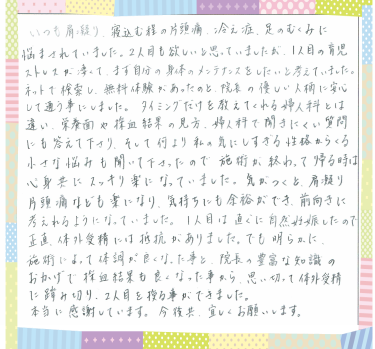 いつも肩凝り、寝込む程の片頭痛、冷え症、足のむくみに
悩まされていました。2人目も欲しいと思っていましたが、1人目の育児
ストレスが凄くて、まず自分の身体のメンテナンスをしたいと考えていました。
ネットで検索し、無料体験があったのと、院長の優しい人柄に安心
して通う事にしました。タイミングだけを教えてくれる婦人科とは
違い、栄養面や採血結果の見方、婦人科で聞きにくい質問
にも答えて下さり、そして何より私の気にしすぎる性格からくる
小さな悩みも聞いて下さったので施術が終わって帰る時は
心身共にスッキリ楽になっていました。気がつくと、肩凝り
片頭痛なども楽になり、気持ちにも余裕ができ、前向きに
考えれるようになっていました。1人目は直ぐに自然妊娠したので
正直、体外受精には抵抗がありました。でも明らかに、
施術によって体調が良くなった事と、院長の豊富な知識の
おかげで採血結果も良くなった事から、思い切って体外受精
に踏み切り、2人目を授る事ができました。
本当に感謝しています。今後共、宜しくお願いします。